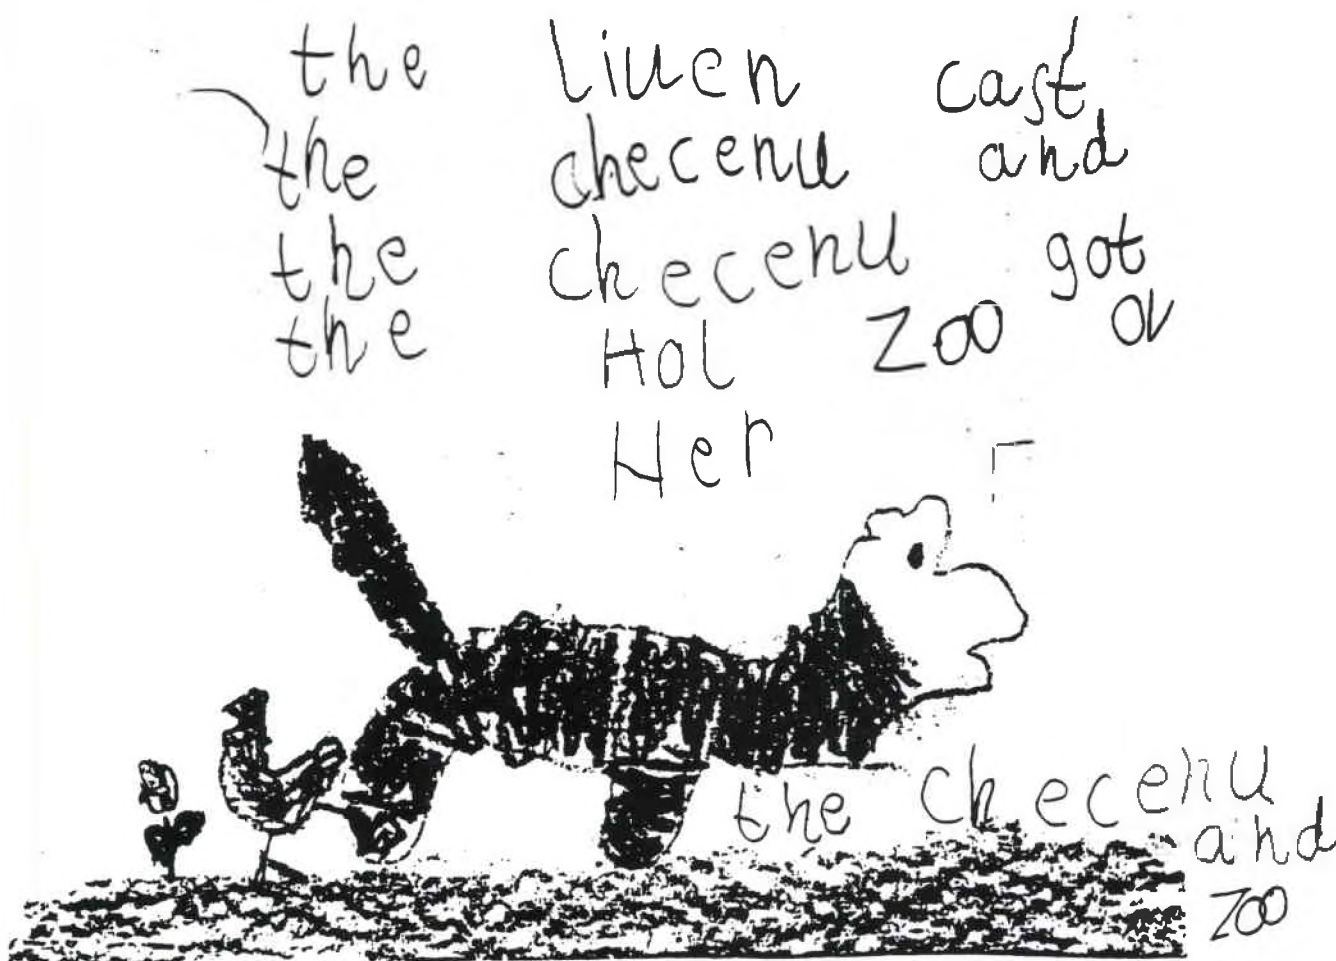 the liuen cast
the checenu and
the checenu got
the Hol zoo ov
Her
the checenu
and
zoo